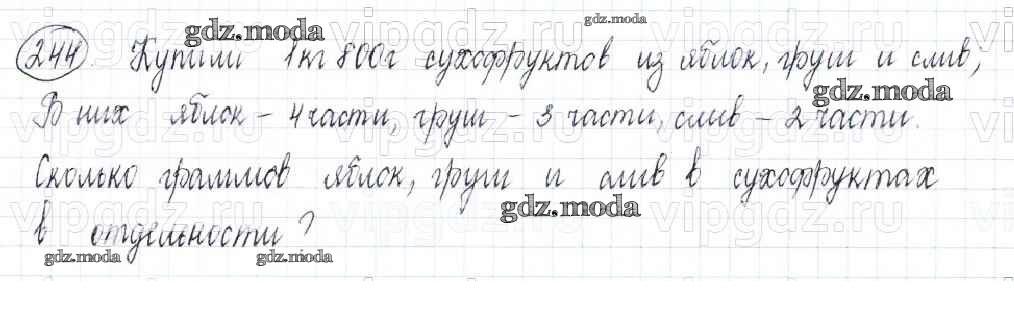 244. Купили 1кг 800г сухофруктов из яблок, груш и слив;
В них яблок - 4 части, груш - 3 части, слив - 2 части.
Сколько граммов яблок, груш и слив в сухофруктах
в отдельности?
gdz.moda
gdz.moda
gdz.moda
gdz.moda
gdz.moda
gdz.moda
vipgdz.ru
vipgdz.ru
vipgdz.ru
vipgdz.ru